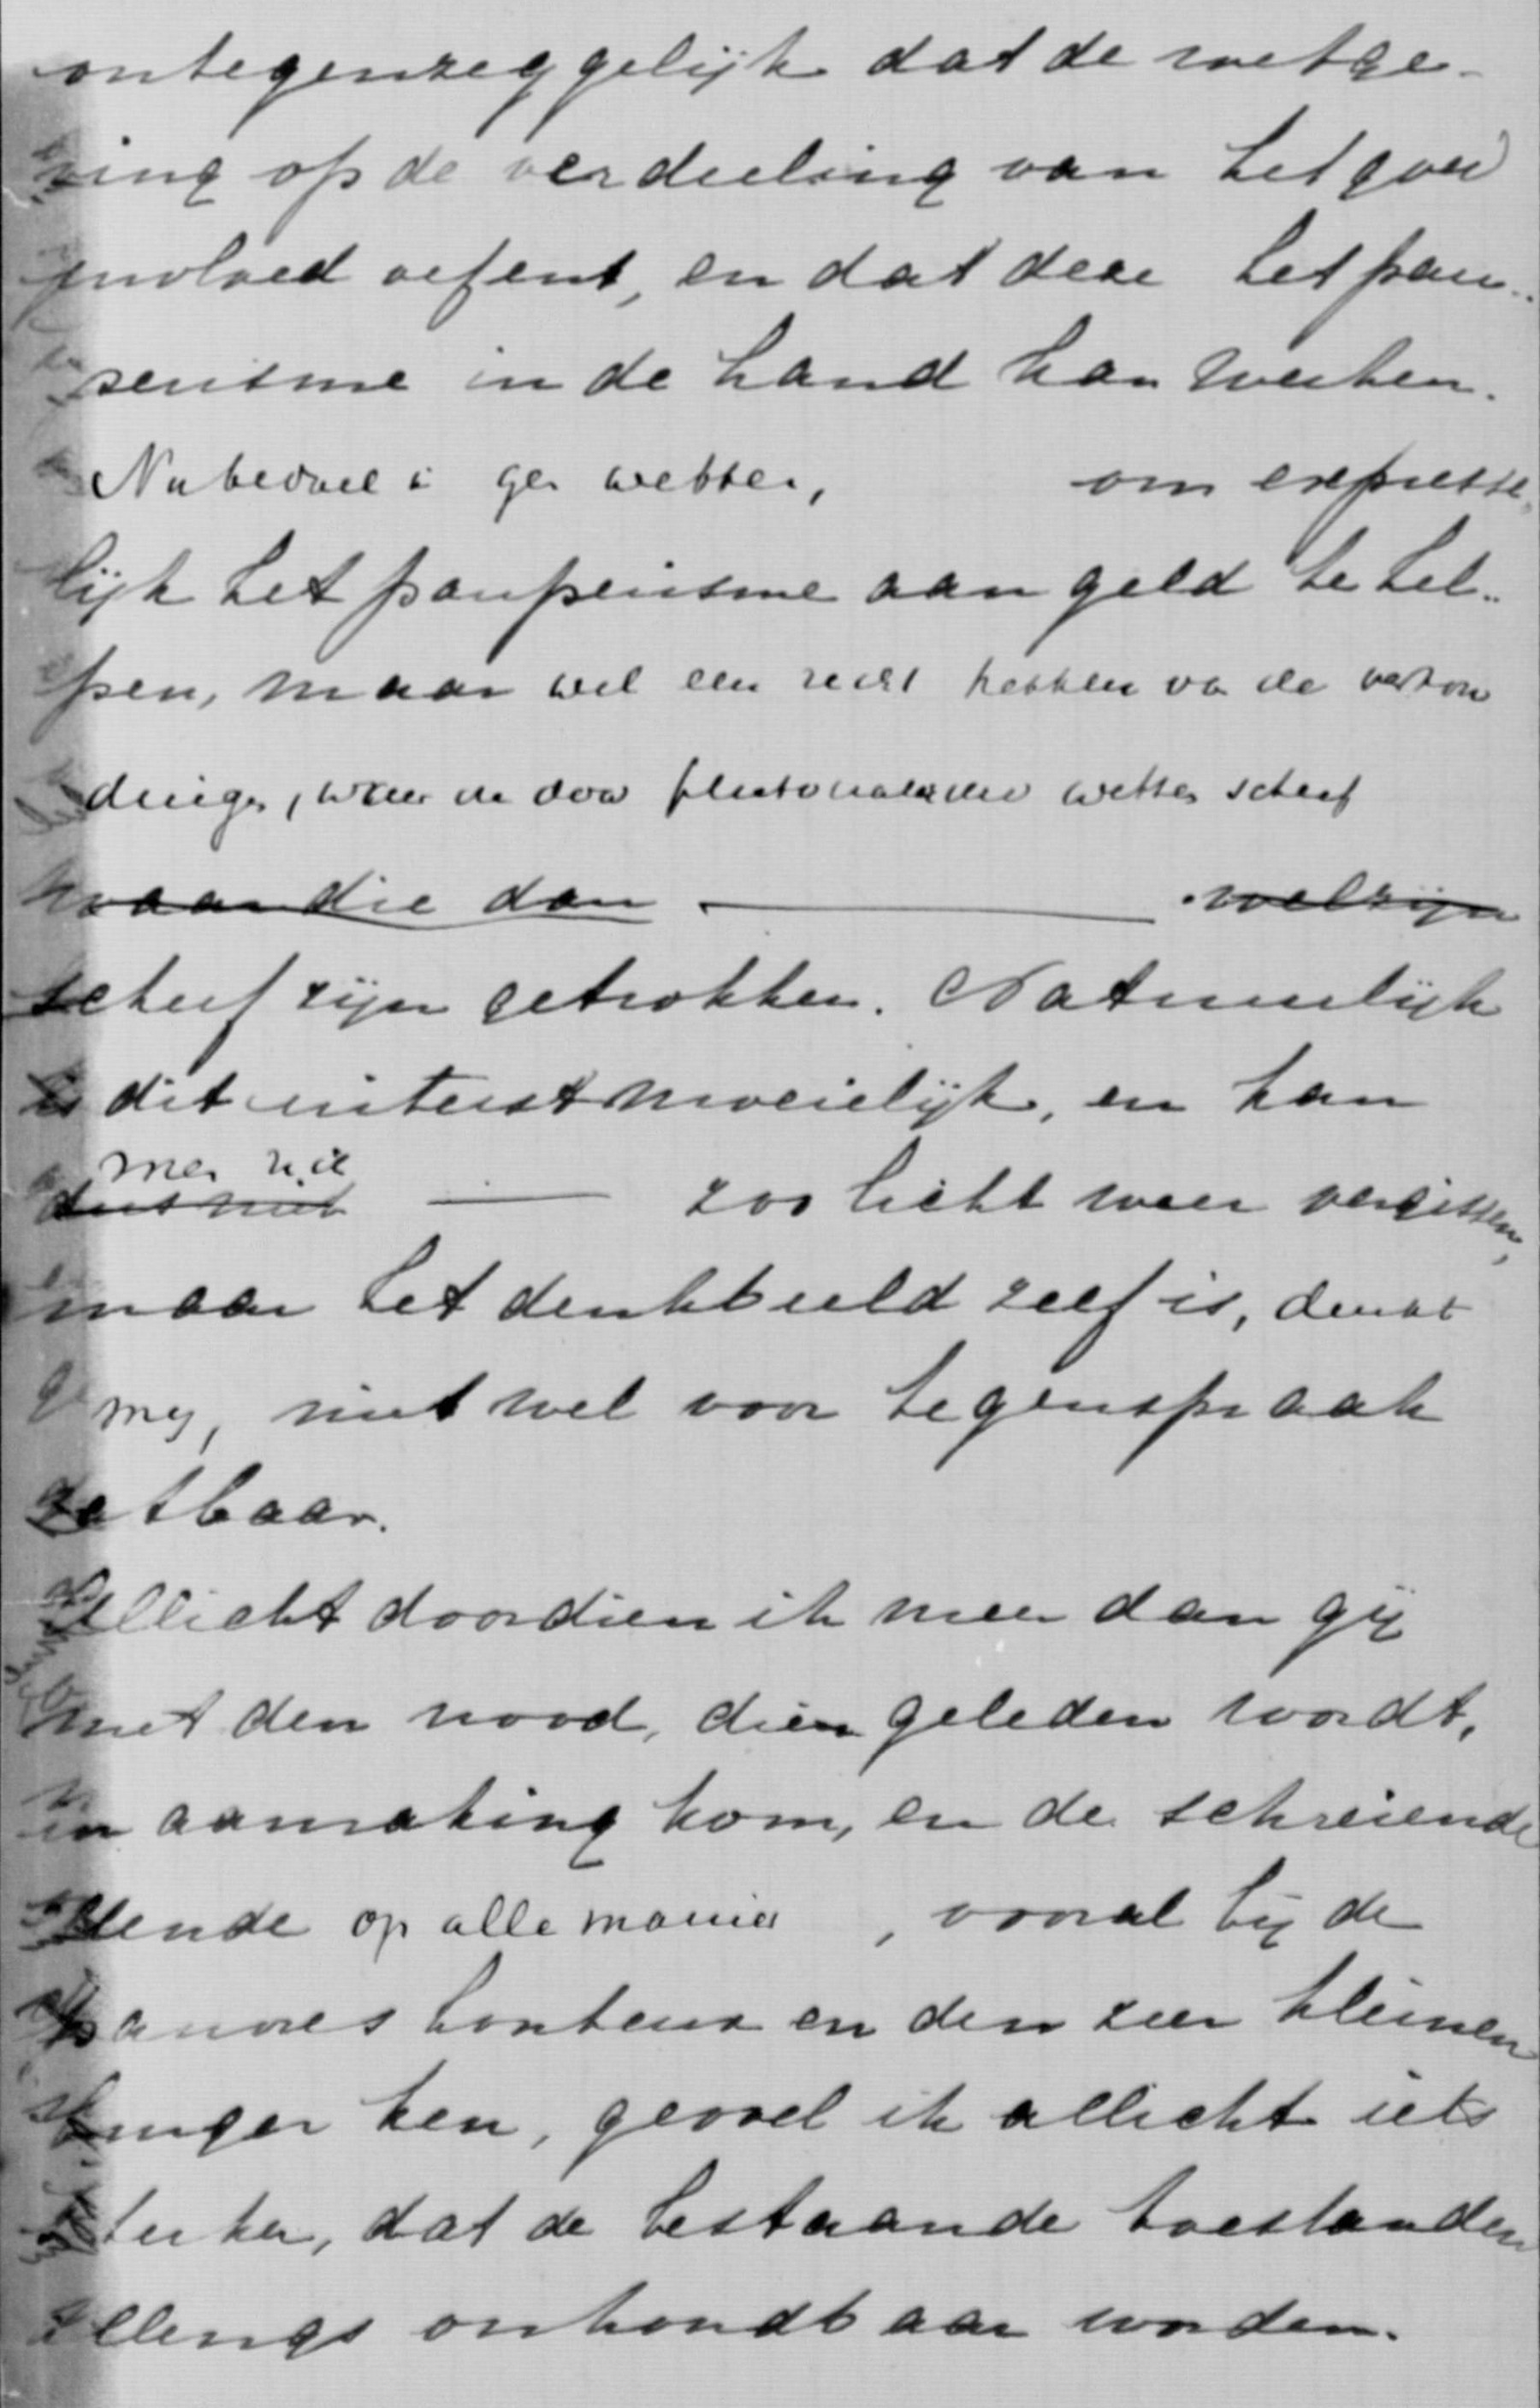 ontegenzeggelijk dat de wetge-
ving op de verdeeling van het goed
invloed oefent, en dat deze het pau-
perisme in de hand kan werken.
Nu bedoel i gen wetten, om expresse-
lijk het pauperisme aan geld te hel-
pen, maar wel een recht trekken va de verhou
dingen, waar de door wetten scheef
waar die dan welzijn
scheef zijn getrokken. Natuurlijk
is dit uiterst moeielijk, en kan
men zich
dus niet zoo licht weer vergissen,
maar het denkbeeld zelf is, dunkt
my, niet wel voor tegenspraak
vatbaar.
Allicht doordien ik meer dan gij
met den nood, dien geleden wordt,
in aanraking kom, en de schreiende
ellende op alle manier, vooral bij de
pauvres honteux en den zeer kleinen
burger ken, gevoel ik allicht iets
sterker, dat de bestaande toestanden
allengs onhoudbaar worden.